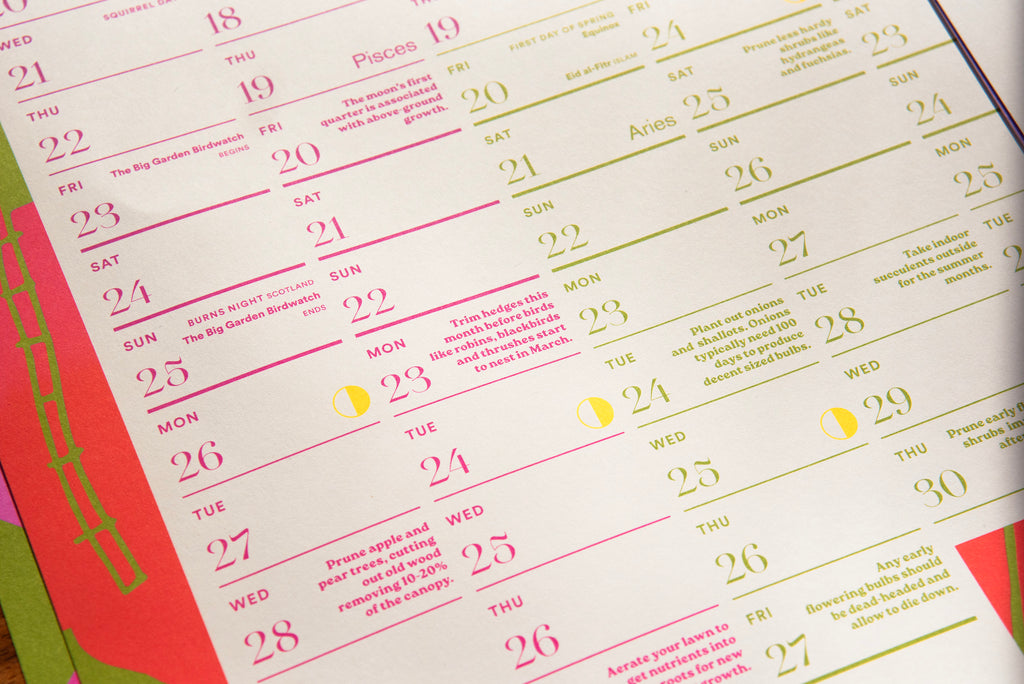 20
SQUIRREL DAY
WED
21
THU
22
FRI
The Big Garden Birdwatch
BEGINS
23
SAT
24
SUN
BURNS NIGHT SCOTLAND
The Big Garden Birdwatch
ENDS
25
MON
26
TUE
27
WED
Prune apple and
pear trees, cutting
out old wood
removing 10-20%
of the canopy.
28
18
THU
Pisces
19
FRI
The moon's first
quarter is associated
with above-ground
growth.
20
SAT
21
SUN
22
MON
Trim hedges this
month before birds
like robins, blackbirds
and thrushes start
to nest in March.
23
TUE
24
WED
25
THU
26
Aerate your lawn to
get nutrients into
roots for new
growth.
THU
19
FRI
FIRST DAY OF SPRING
Equinox
Eid al-Fitr ISLAM
20
SAT
Aries
21
SUN
22
MON
23
TUE
Plant out onions
and shallots. Onions
typically need 100
days to produce
decent sized bulbs.
24
WED
25
THU
26
FRI
Any early
flowering bulbs should
be dead-headed and
allow to die down.
27
FRI
Prune less hardy
shrubs like
hydrangeas
and fuchsias.
24
SAT
25
SUN
26
MON
27
TUE
Take indoor
succulents outside
for the summer
months.
28
WED
29
THU
Prune early
shrubs
30
SAT
23
SUN
24
MON
25
TUE